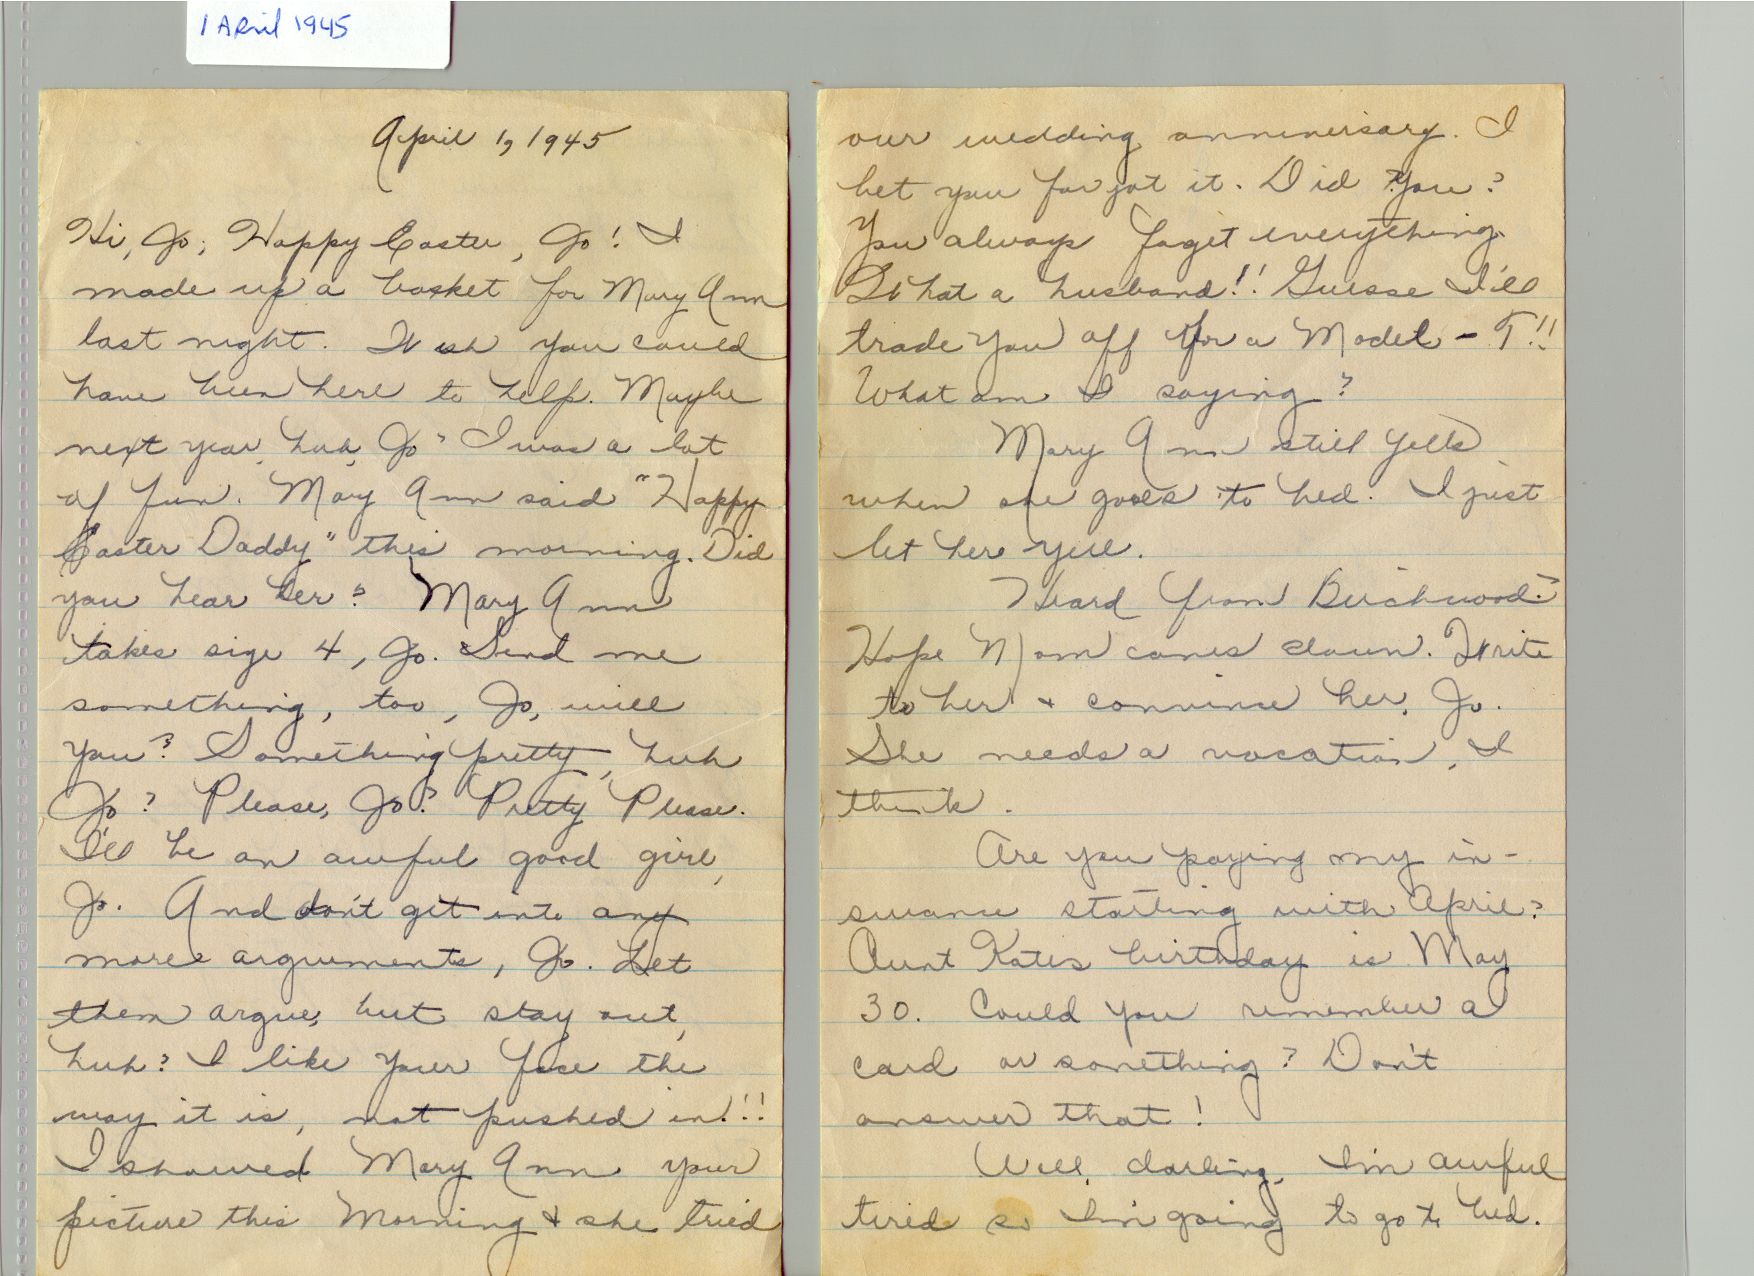 1 April 1945
April 1, 1945
Hi, Jo; Happy Easter, Jo! I
made up a basket for Mary Ann
last night. Wish you could
have been here to help. Maybe
next year, huh, Jo? I was a lot
of fun. Mary Ann said "Happy
Easter Daddy" this morning. Did
you hear her? Mary Ann
takes size 4, Jo. Send me
something, too, Jo, will
you? Something pretty, huh
Jo? Please, Jo? Pretty Please.
I'll be an awful good girl,
Jo. And don't get into any
more arguments, Jo. Let
them argue, but stay out,
huh? I like your face the
way it is, not pushed in!!!
I showed Mary Ann your
picture this Morning & she tried
our wedding anniversary. I
bet you forgot it. Did you?
You always forget everything.
What a husband!! Guesse I'll
trade you off for a Model-T!!
What am I saying?
Mary Ann still yells
when she goes to bed. I just
let her yell.
Heard from Birchwood?
Hope Mom comes down. Write
to her & convince her, Jo.
She needs a vacation, I
think.
Are you paying my in-
surance starting with April?
Aunt Kate's birthday is May
30. Could you remember a
card or something? Don't
answer that!
Well, darling, I'm awful
tired so I'm going to go to bed.